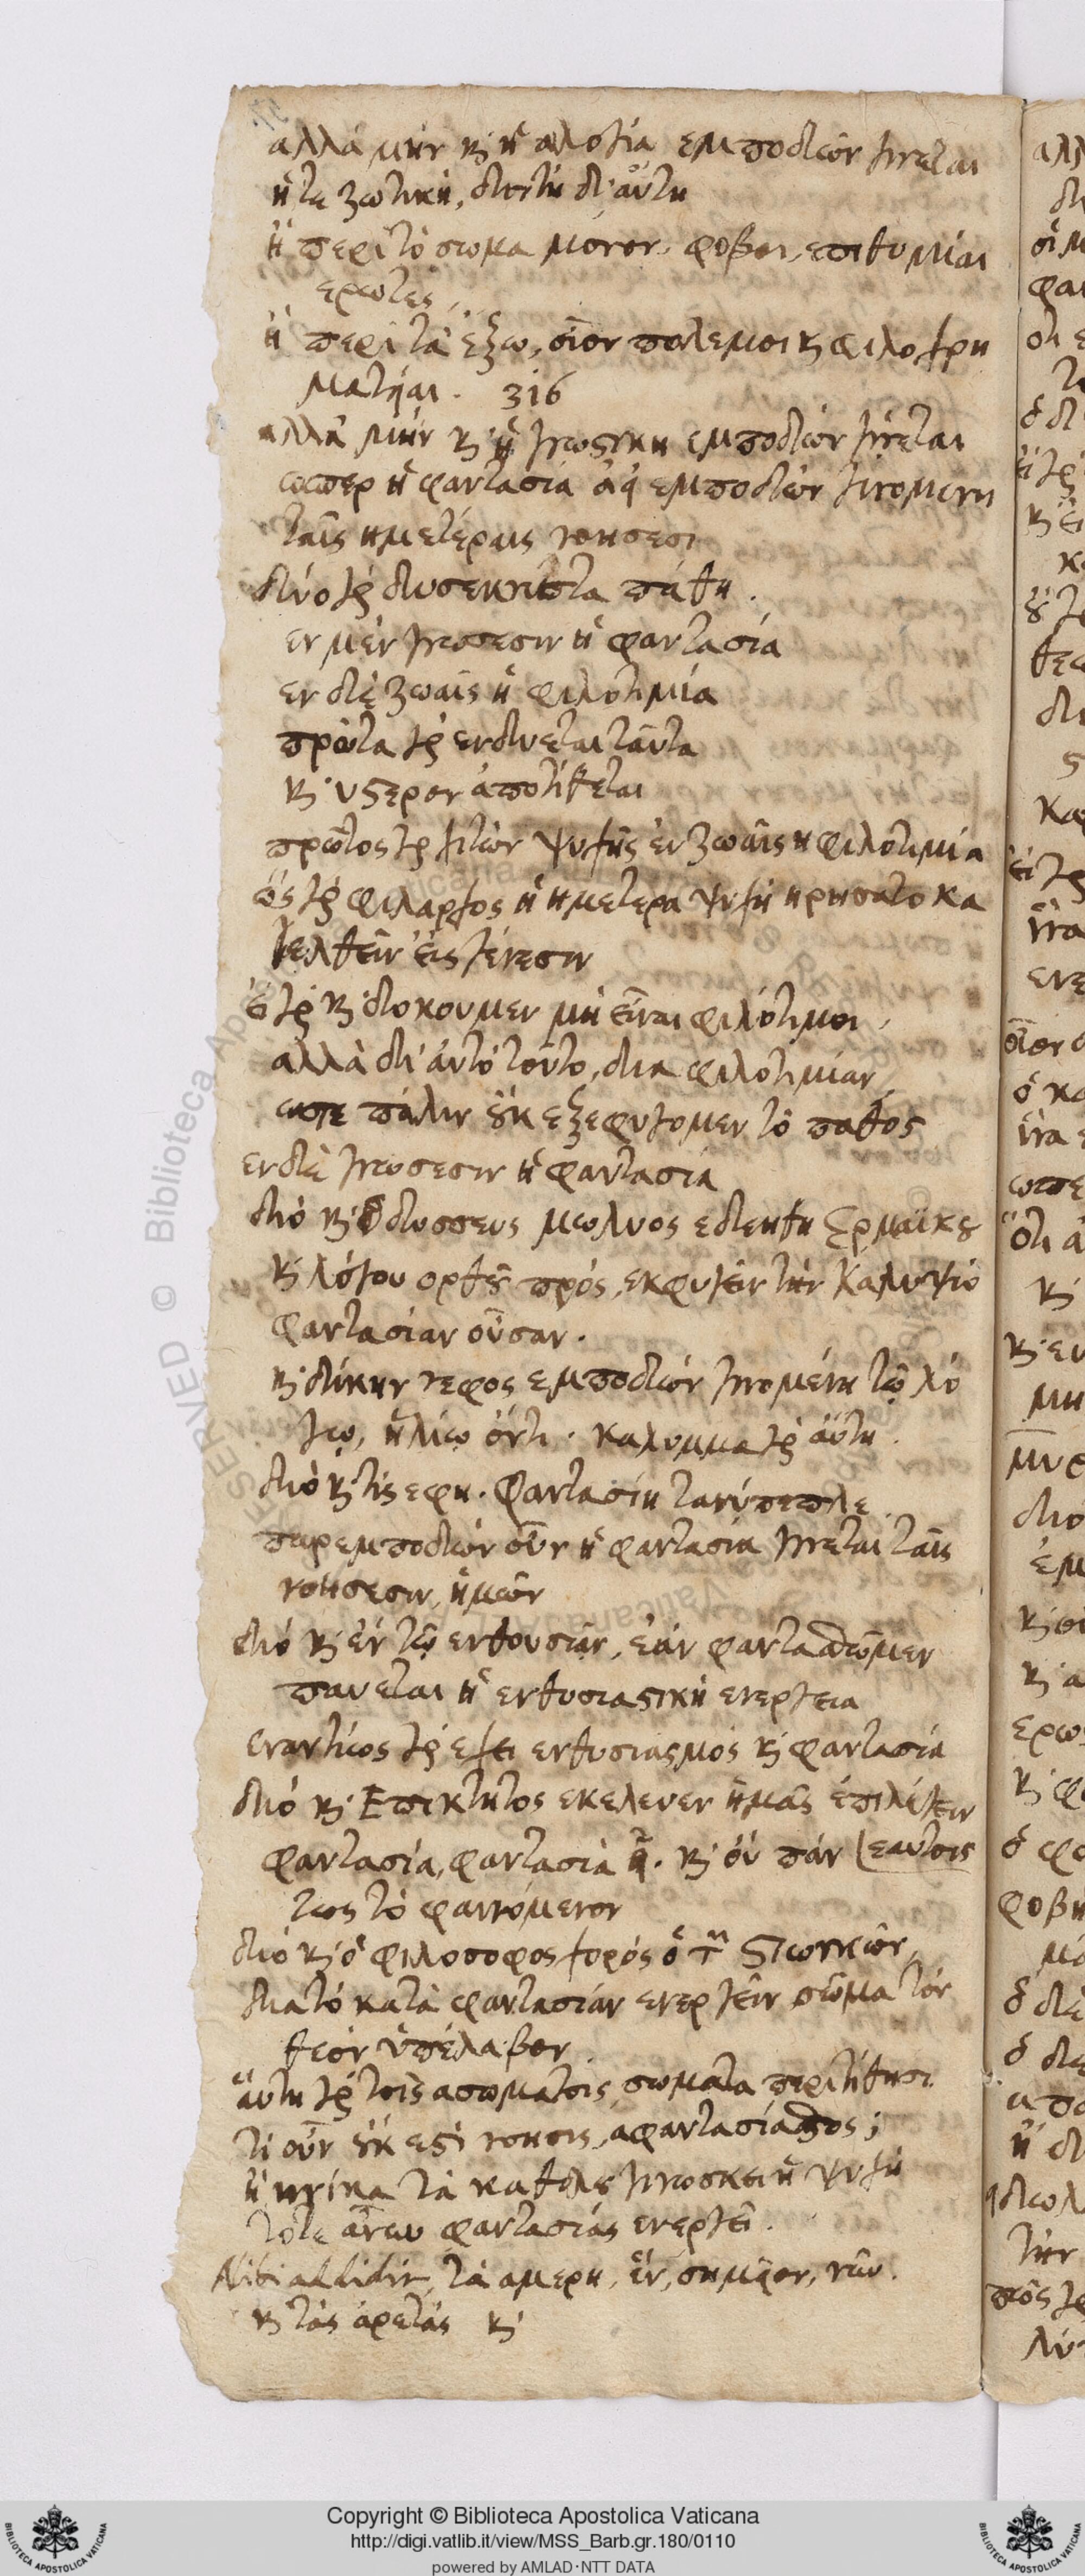 αλλά μὴν κ ἡ αλογία εμποδιὼν γίνεται
ἥτε ζωτικὴ, διττὴ δὲ αὕτη
ἢ περὶ τὸ σωμα μόνον. φοβοι, επιθυμίαι
ερωτες,
ἢ περὶ τὰ ἔξω, οἷον πολεμοι κ φιλοχρη
ματίαι. 316
αλλὰ μὴν κ ἡ γνωστικη εμποδιὼν γίνεται
ωσπερ ἡ φαντασία ἀεὶ εμποδιὼν γινομενη
ταῖς ημετέραις νοησεσι
δύο γὰρ δυσεκνιπτα πάθη.
εν μὲν γνωσεσιν ἡ φαντασία
εν δὲ ζωαῖς ἡ φιλοτιμία
πρῶτα γὰρ ενδυεται ταῦτα
κ υστερον ἀποτίθεται
πρῶτος γὰρ χιτὼν ψυχῆς ἐν ζωαῖς η φιλοτιμία
ὡς γὰρ φιλαρχος ἡ ημετερα ψυχὴ ηρησατο κα
τελθεῖν εἰς γένεσιν
εἰ γὰρ κ δοκουμεν μὴ εἶναι φιλότιμοι,
αλλὰ δι' ἀυτὸ τοῦτο, δια φιλοτιμίαν,
ωστε πάλιν ουκ εξεφυγομεν τὸ παθος
εν δὲ γνωσεσιν ἡ φαντασία
διὸ κ Οδυσσευς μωλυος εδεηθη Ερμαϊκου
κ λόγου ορθοῦ πρὸς, εκφυγεῖν τὴν Καλυψὼ
φαντασίαν οὖσαν.
κ δίκην νεφος εμποδιὼν γινομένη τῷ λό
γῳ, ἡλίῳ ὄντι. καλυμμα γὰρ αὕτη.
διὸ κ τὶς εφη. Φαντασίη τανύπεπλε
παρεμποδιὼν οὖν ἡ φαντασία γίνεται ταῖς
νοησεσιν, ἡμῶν
διὸ κ ἐν τῷ ενθουσιᾷν, ἐὰν φαντασθῶμεν
παυεται ἡ ενθυσιαστικὴ ενεργεια
εναντίως γὰρ εχει ενθυσιασμὸς κ φαντασία
διὸ κ Επικτητος εκελευεν ἡμᾶς ἐπιλέγειν
φαντασία, φαντασιὰ εἶ. κ οὐ πάν (εαυτοις
τως τὸ φαινόμενον
διὸ κ ὁ φιλοσοφος χορὸς ὁ τῶν Στωικῶν,
διατὸ κατὰ φαντασίαν ενεργεῖν σῶμα τὸν
θεὸν ὑπέλαβεν
αὕτη γὰρ τοῖς ασωματοις σωματα περιτίθησι.
τί οὖν ουκ εστὶ νοησις, αφαντασίαστος;
ἢ ηνίκα τὰ καθολου γινωσκει ἡ ψυχὴ
τότε ἄνευ φαντασίας ενεργεῖ.
Alibi addidit, τὰ αμερη, ἓν, σημεῖον, νῦν.
κ τὰς ἀρετὰς κ